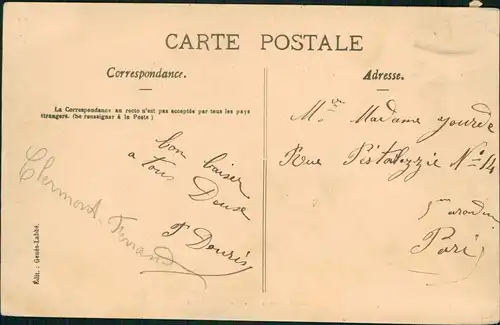 CARTE POSTALE
Correspondance.
Adresse.
La Correspondance au recto n'est pas acceptée par tous les pays
étrangers. (Se renseigner à la Poste)
bon baiser
a tous Douse
P Douris
Clermont-Ferrand
Édit. : Genès-Labbé.
Mr Madame Jourde
Rue Pestalozzie No 14
5me arondi
Paris